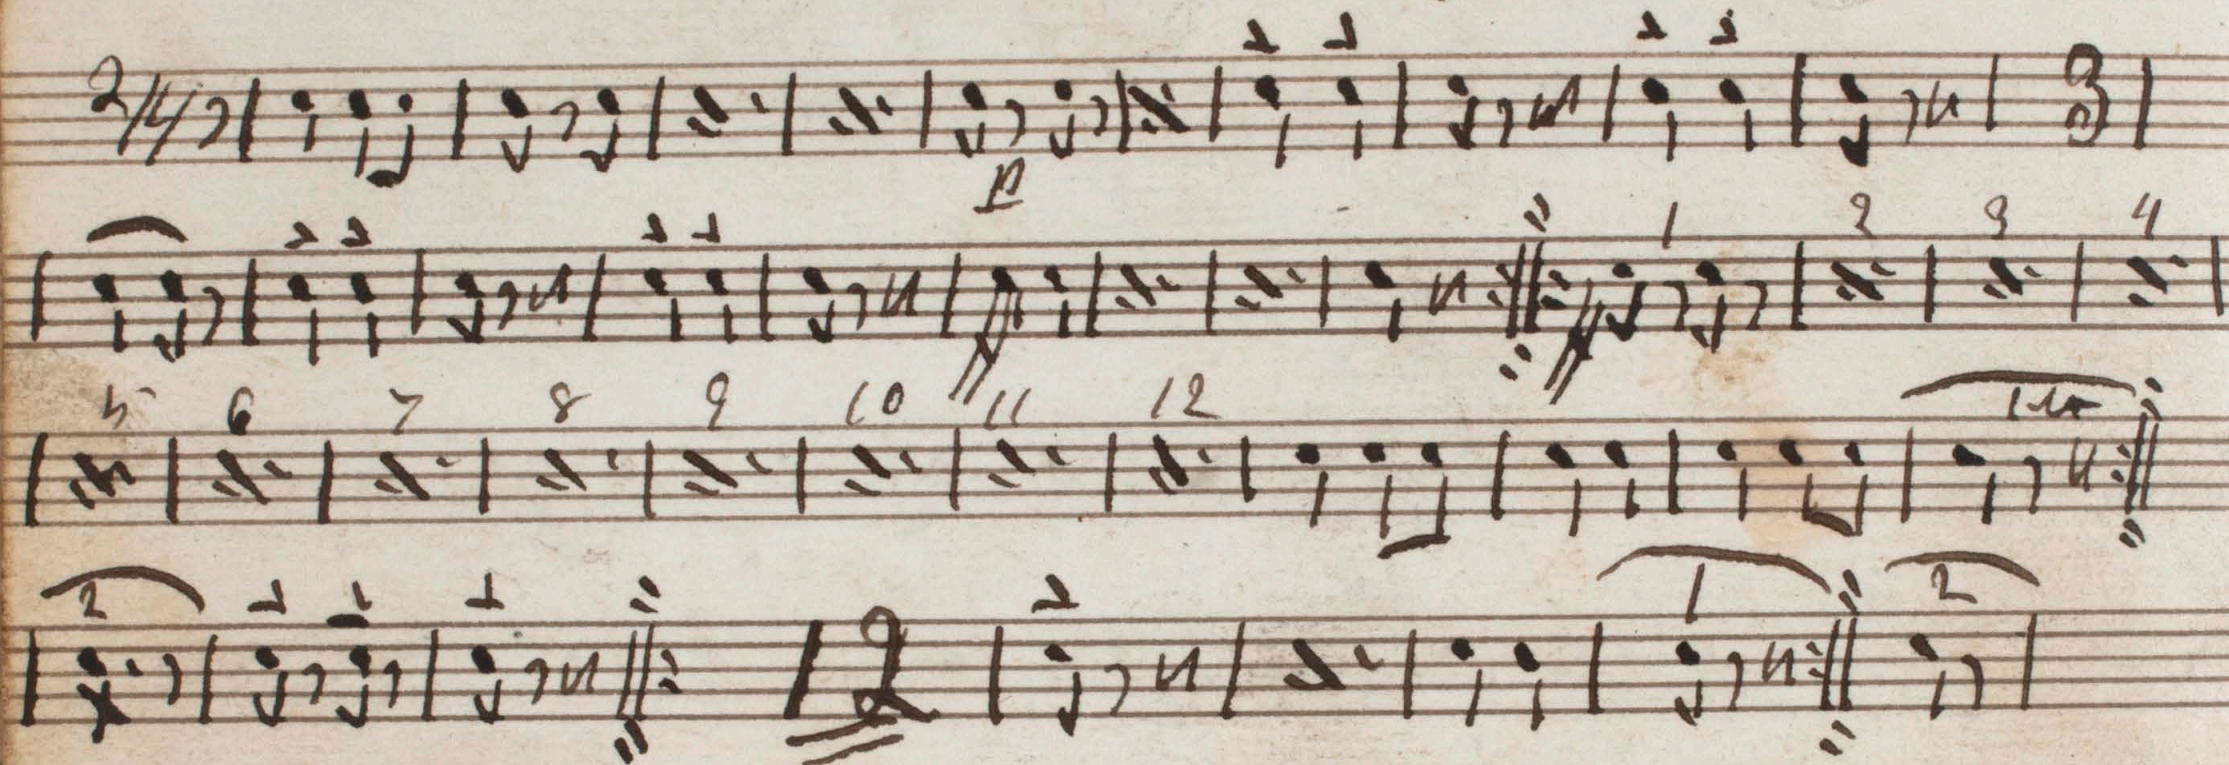 2/4
3
p
1 2 3 4
ff ff
5 6 7 8 9 10 11 12 1ma
2 1 2
12